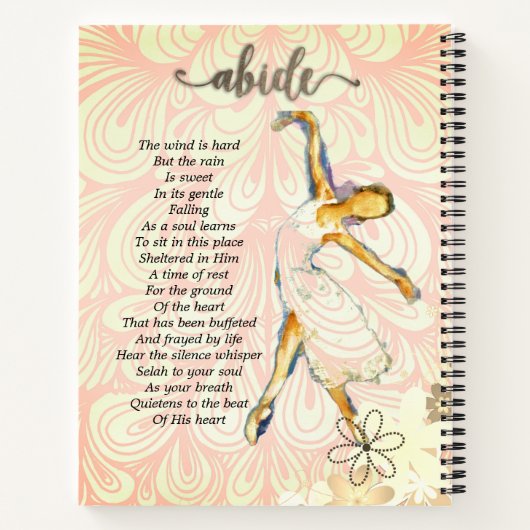 abide
The wind is hard
But the rain
Is sweet
In its gentle
Falling
As a soul learns
To sit in this place
Sheltered in Him
A time of rest
For the ground
Of the heart
That has been buffeted
And frayed by life
Hear the silence whisper
Selah to your soul
As your breath
Quietens to the beat
Of His heart